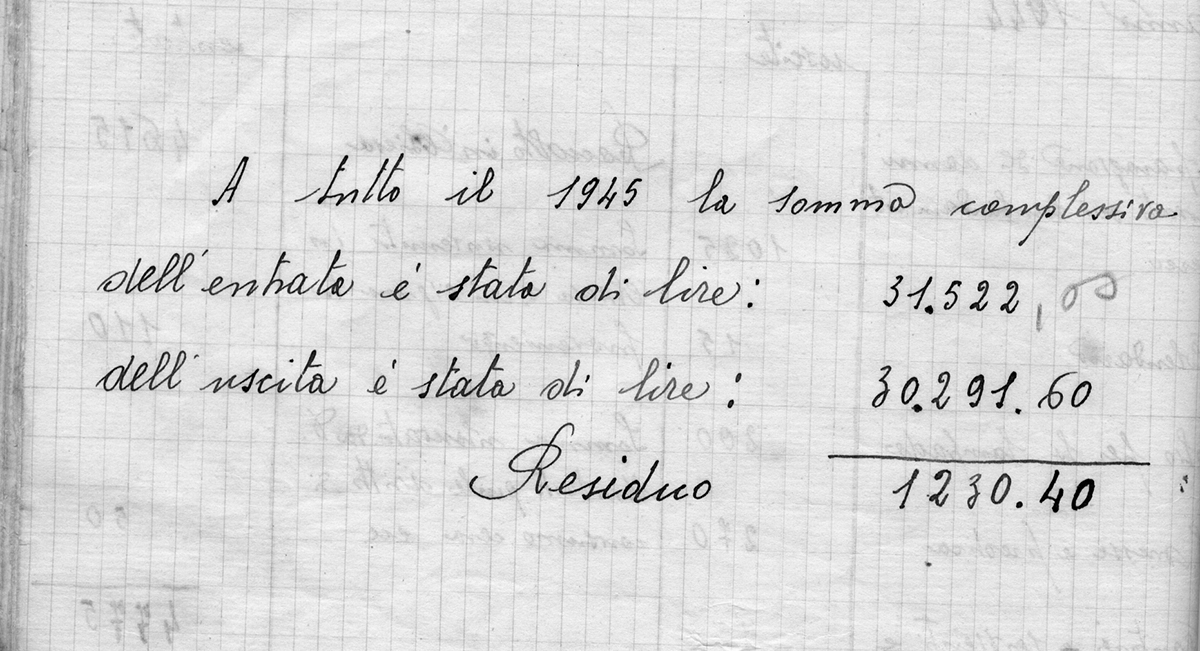 A tutto il 1945 la somma complessiva
dell'entrata é stata di lire: 31.522,
dell'uscita é stata di lire: 30.291.60
Residuo 1230.40